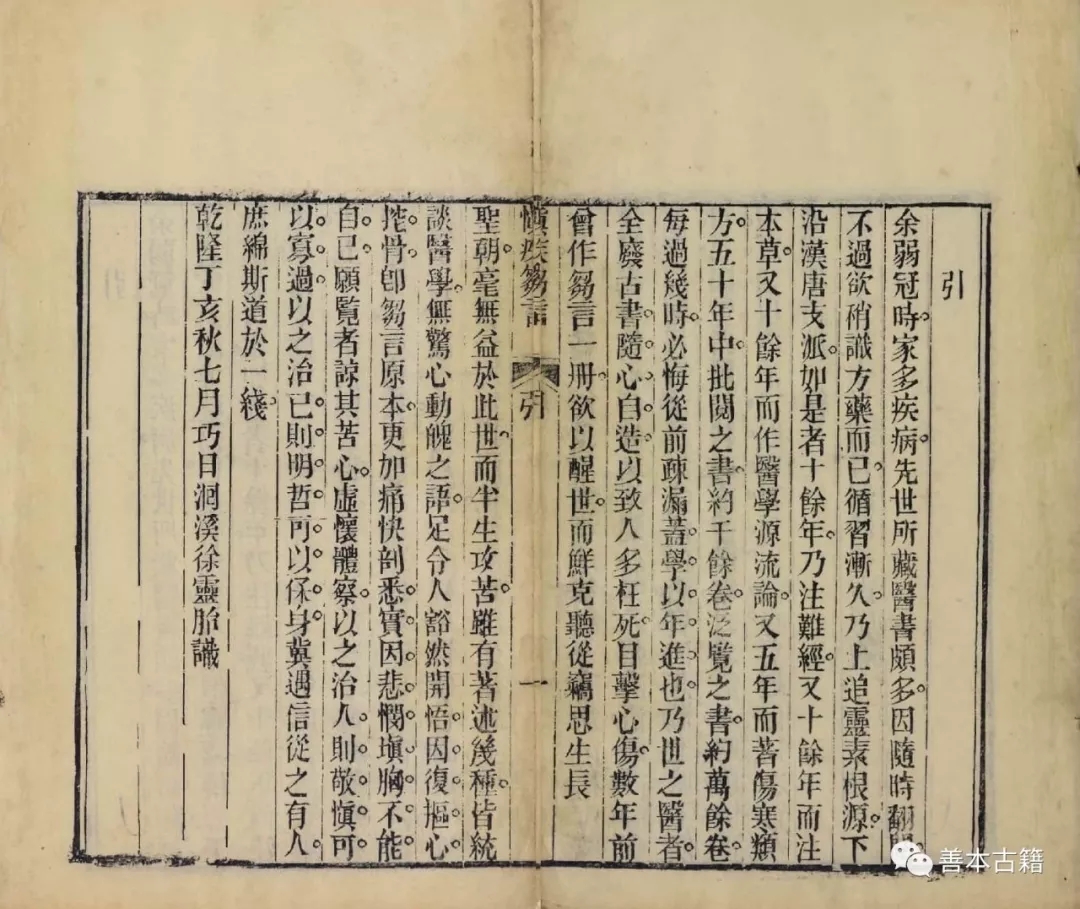 引
余弱冠時家多疾病。先世所藏醫書頗多。因隨時翻閱
不過欲稍識方藥而已。循習漸久。乃上追靈素根源。下
沿漢唐支派。如是者十餘年。乃注難經。又十餘年而注
本草。又十餘年而作醫學源流論。又五年而著傷寒類
方。五十年中。批閱之書約千餘卷。泛覽之書約萬餘卷。
每過幾時。必悔從前疎漏。蓋學以年進也。乃世之醫者。
全廢古書。隨心自造。以致人多枉死。目擊心傷。數年前
曾作芻言一冊。欲以醒世。而鮮克聽從。竊思生長
慎疾芻言 引 一
聖朝。毫無益於此世。而半生攻苦。雖有著述幾種。皆統
談醫學。無驚心動魄之語。足令人豁然開悟。因復摳心
挖骨。卽芻言原本。更加痛快剖悉。實因悲憫塡胸。不能
自已。願覽者諒其苦心。虛懷體察。以之治人。則敬慎可
以寡過。以之治已。則明哲可以保身。冀遇信從之有人。
庶綿斯道於一綫。
乾隆丁亥秋七月巧日洄溪徐靈胎識
善本古籍